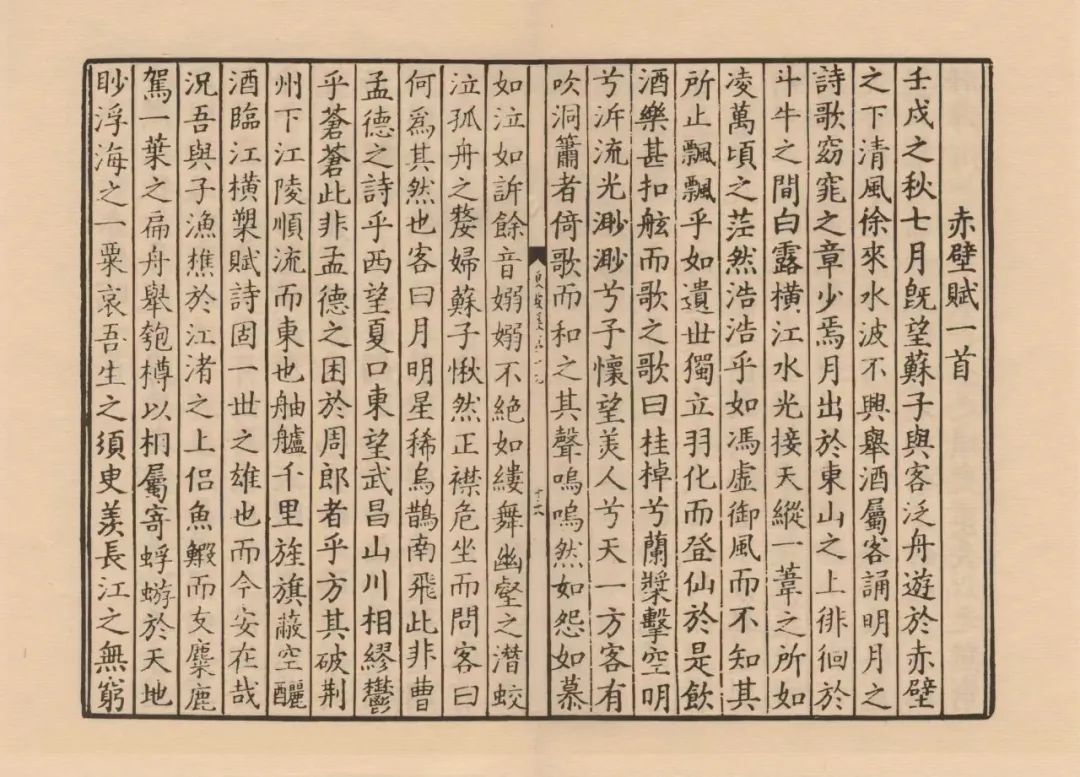 赤壁賦一首
壬戌之秋七月旣望蘇子與客泛舟遊於赤壁
之下清風徐來水波不興舉酒屬客誦明月之
詩歌窈窕之章少焉月出於東山之上徘徊於
斗牛之間白露橫江水光接天縱一葦之所如
凌萬頃之茫然浩浩乎如馮虛御風而不知其
所止飄飄乎如遺世獨立羽化而登仙於是飲
酒樂甚扣舷而歌之歌曰桂棹兮蘭槳擊空明
兮泝流光渺渺兮予懷望美人兮天一方客有
吹洞簫者倚歌而和之其聲嗚嗚然如怨如慕
如泣如訴餘音嫋嫋不絕如縷舞幽壑之潛蛟
泣孤舟之嫠婦蘇子愀然正襟危坐而問客曰
何爲其然也客曰月明星稀烏鵲南飛此非曹
孟德之詩乎西望夏口東望武昌山川相繆鬱
乎蒼蒼此非孟德之困於周郎者乎方其破荆
州下江陵順流而東也舳艫千里旌旗蔽空釃
酒臨江橫槊賦詩固一世之雄也而今安在哉
況吾與子漁樵於江渚之上侶魚鰕而友麋鹿
駕一葉之扁舟舉匏樽以相屬寄蜉蝣於天地
眇浮海之一粟哀吾生之須臾羨長江之無窮